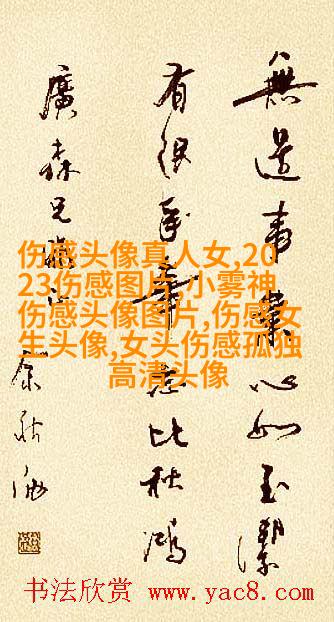 無邊事業心如玉潔
有限年華志比秋鴻
廣森兄雅正
余秋雨
伤感头像真人女,20
23伤感图片,小雾神
伤感头像图片,伤感女
生头像,女头伤感孤独
高清头像
书法欣赏 www.yac8.com